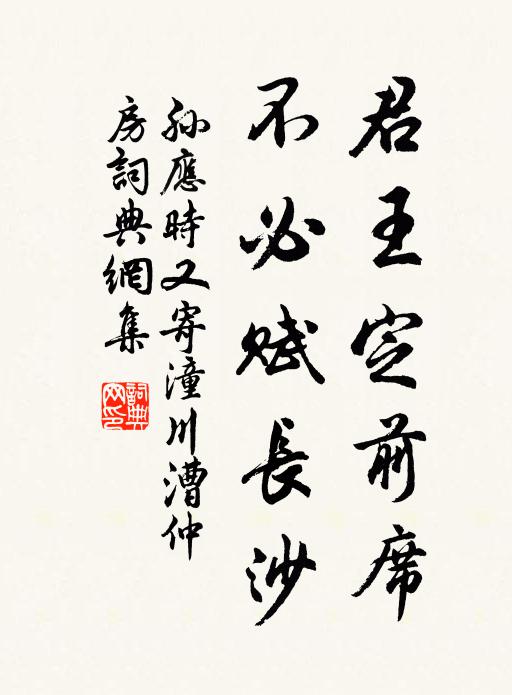 君王定前席
不必賦長沙
孫應時又寄潼川漕仲
房詞典網集
詞典網印